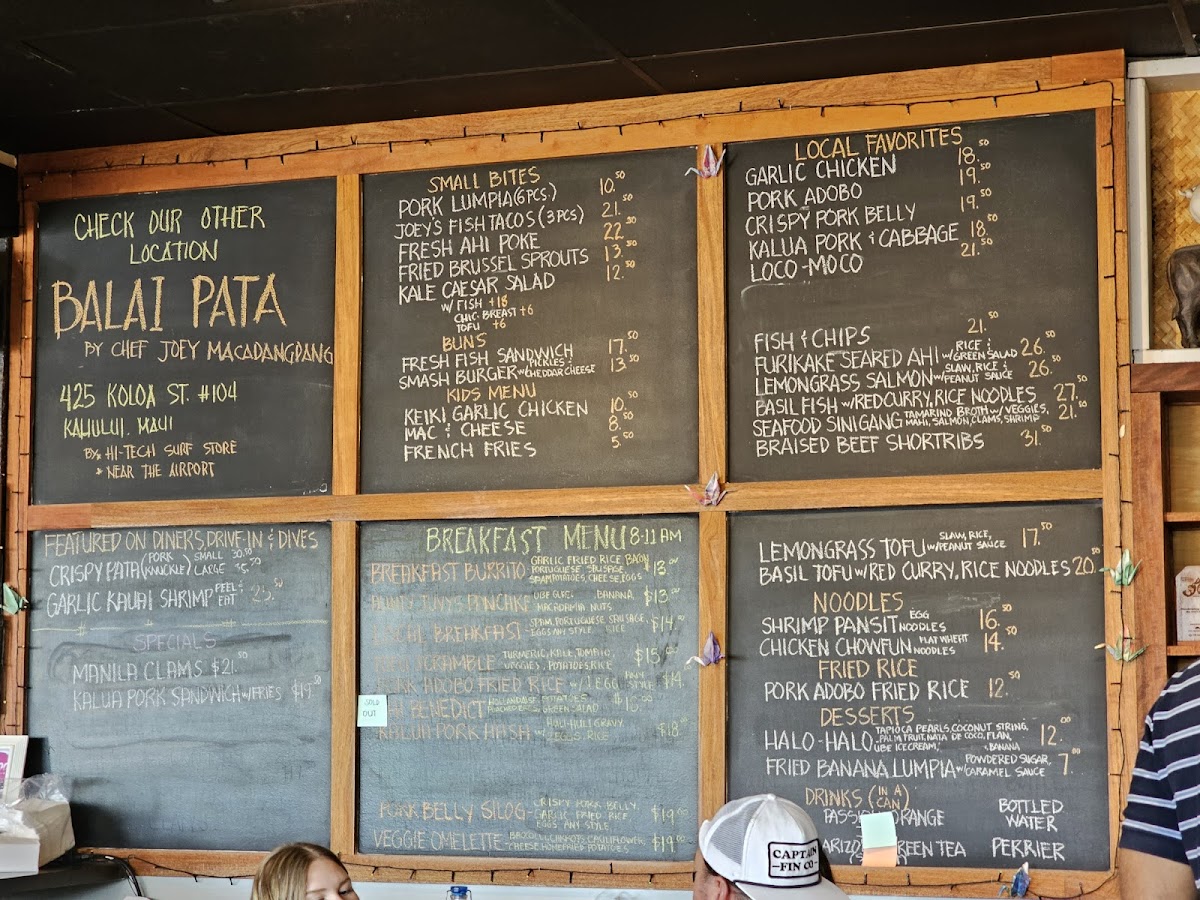 CHECK OUR OTHER
LOCATION
BALAI PATA
BY CHEF JOEY MACADANGDANG
425 KOLOA ST. #104
KAHULUI. MAUI
BY: HI-TECH SURF STORE
* NEAR THE AIRPORT
SMALL BITES
PORK LUMPIA (6 PCS.) 10.50
JOEY'S FISH TACOS (3 PCS) 21.50
FRESH AHI POKE 22.50
FRIED BRUSSEL SPROUTS 13.50
KALE CAESAR SALAD 12.50
W/ FISH +18
CHIC. BREAST +6
TOFU +6
BUNS
FRESH FISH SANDWICH 17.50
SMASH BURGER W/ PICKLES & CHEDDAR CHEESE 13.50
KIDS MENU
KEIKI GARLIC CHICKEN 10.50
MAC & CHEESE 8.50
FRENCH FRIES 5.50
LOCAL FAVORITES
GARLIC CHICKEN 18.50
PORK ADOBO 19.50
CRISPY PORK BELLY 19.50
KALUA PORK & CABBAGE 18.50
LOCO-MOCO 21.50
FISH & CHIPS 21.50
FURIKAKE SEARED AHI RICE & W/ GREEN SALAD 26.50
LEMONGRASS SALMON SLAW, RICE & W/ PEANUT SAUCE 26.50
BASIL FISH W/ RED CURRY, RICE NOODLES 27.50
SEAFOOD SINIGANG TAMARIND BROTH W/ VEGGIES, MAHI, SALMON, CLAMS, SHRIMP 21.50
BRAISED BEEF SHORTRIBS 31.50
FEATURED ON DINERS, DRIVE-IN & DIVES
CRISPY PATA (PORK KNUCKLE) SMALL 30.50 LARGE
GARLIC KAUAI SHRIMP PEEL & EAT 25.50
SPECIALS
MANILA CLAMS $21.50
KALUA PORK SANDWICH W/ FRIES $19.50
BREAKFAST MENU 8-11 AM
BREAKFAST BURRITO GARLIC FRIED RICE, BACON, PORTUGUESE SAUSAGE, SPAM, POTATOES, CHEESE, EGGS $13.00
PANCAKE UBE BANANA, MACADAMIA NUTS $13.00
LOCAL BREAKFAST SPAM, PORTUGUESE SAUSAGE, EGGS ANY STYLE RICE $14.00
SCRAMBLE TURMERIC, KALE, TOMATO, VEGGIES, POTATOES, RICE $15.00
PORK ADOBO FRIED RICE W/ 1 EGG ANY STYLE $14
SOLD OUT
BENEDICT HOLLANDAISE POTATOES GREEN SALAD
KALUA PORK HASH W/ HULI-HULI GRAVY, EGGS, RICE $18.00
PORK BELLY SILOG - CRISPY PORK BELLY, GARLIC FRIED RICE, EGGS ANY STYLE $19.00
VEGGIE OMELETTE - BROCCOLI, CARROTS, CAULIFLOWER, CHEESE HOMEFRIED POTATOES $19.00
LEMONGRASS TOFU SLAW, RICE, W/ PEANUT SAUCE 17.50
BASIL TOFU W/ RED CURRY, RICE NOODLES 20.50
NOODLES
SHRIMP PANSIT EGG NOODLES 16.50
CHICKEN CHOWFUN FLAT WHEAT NOODLES 14.50
FRIED RICE
PORK ADOBO FRIED RICE 12.50
DESSERTS
HALO-HALO TAPIOCA PEARLS, COCONUT STRING, PALM FRUIT, NATA DE COCO, FLAN, UBE ICE CREAM, BANANA 12.00
FRIED BANANA LUMPIA W/ POWDERED SUGAR, CARAMEL SAUCE 7.00
DRINKS (IN A CAN)
PASSION ORANGE
BOTTLED WATER
GREEN TEA
PERRIER
CAPTAIN
-FIN CO-